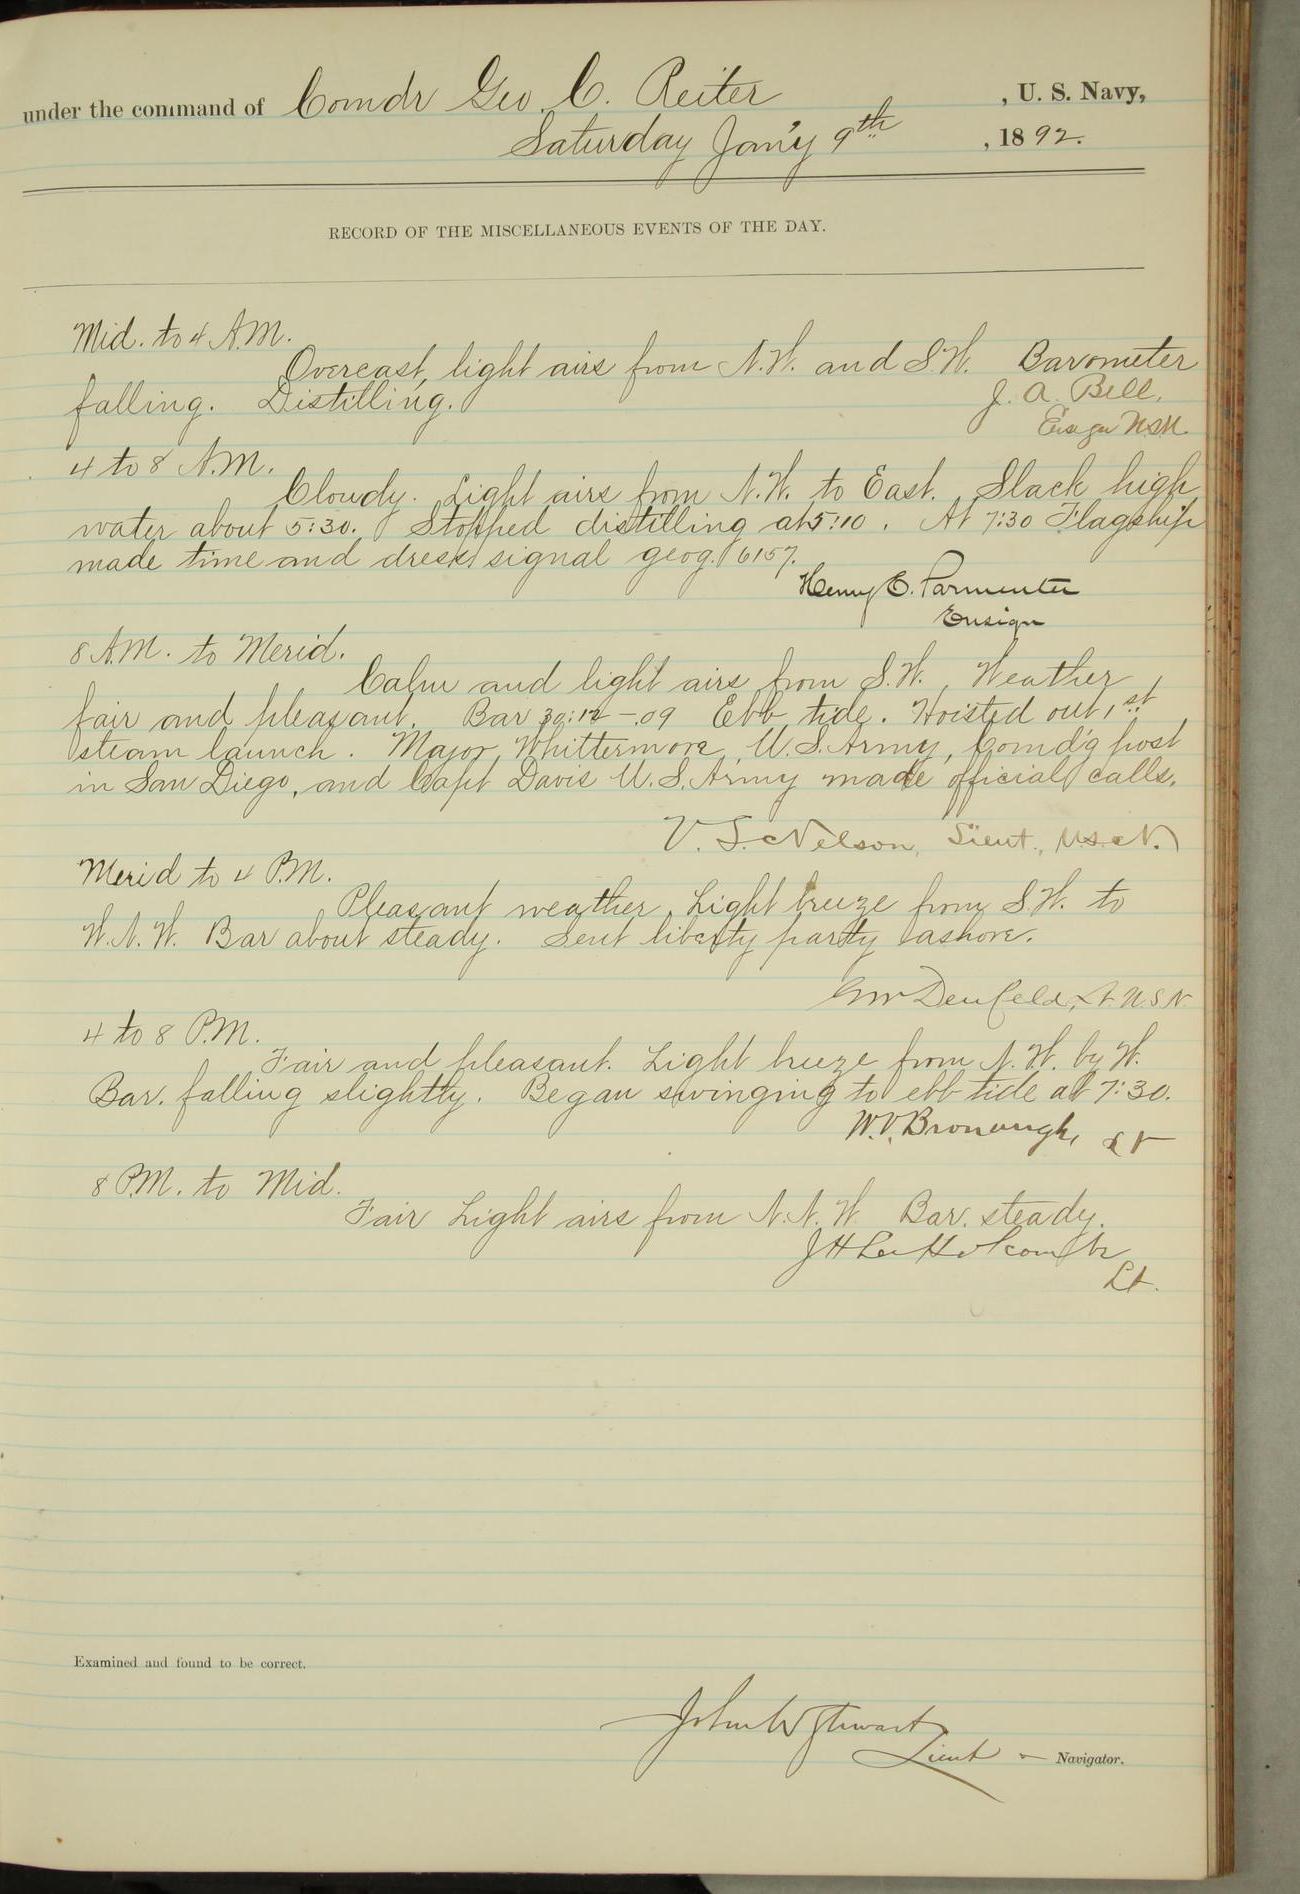 under the command of Comdr Geo. C. Reiter , U. S. Navy,
Saturday Jan'y 9th , 1892.
RECORD OF THE MISCELLANEOUS EVENTS OF THE DAY.
Mid. to 4 A.M.
Overcast, light airs from N.W. and S.W. Barometer
falling. Distilling.
J. A. Bell,
Ensign USN.
4 to 8 A.M.
Cloudy. Light airs from N.W. to East. Slack high
water about 5:30. Stopped distilling at 5:10. At 7:30 Flagship
made time and dress signal geog. 6157.
Henry E. Parmenter
Ensign
8 A.M. to Merid.
Calm and light airs from S.W., Weather
fair and pleasant. Bar 30:12 - .09 Ebb tide. Hoisted out 1st
steam launch. Major Whittermore, U.S. Army, Comd'g post
in San Diego, and Capt Davis U.S. Army made official calls.
V. S. Nelson, Lieut., U.S.N.
Merid to 4 P.M.
Pleasant weather. Light breeze from S.W. to
W.N.W. Bar about steady. Sent liberty party ashore.
GW Denfeld, Lt. U.S.N
4 to 8 P.M.
Fair and pleasant. Light breeze from N.W. by W.
Bar. falling slightly. Began swinging to ebb tide at 7:30.
W.V. Bronaugh, Lt
8 P.M. to Mid.
Fair Light airs from N.N.W. Bar. steady.
JH Lee Holcombe
Lt.
Examined and found to be correct.
John W Stewart
Lieut - Navigator.